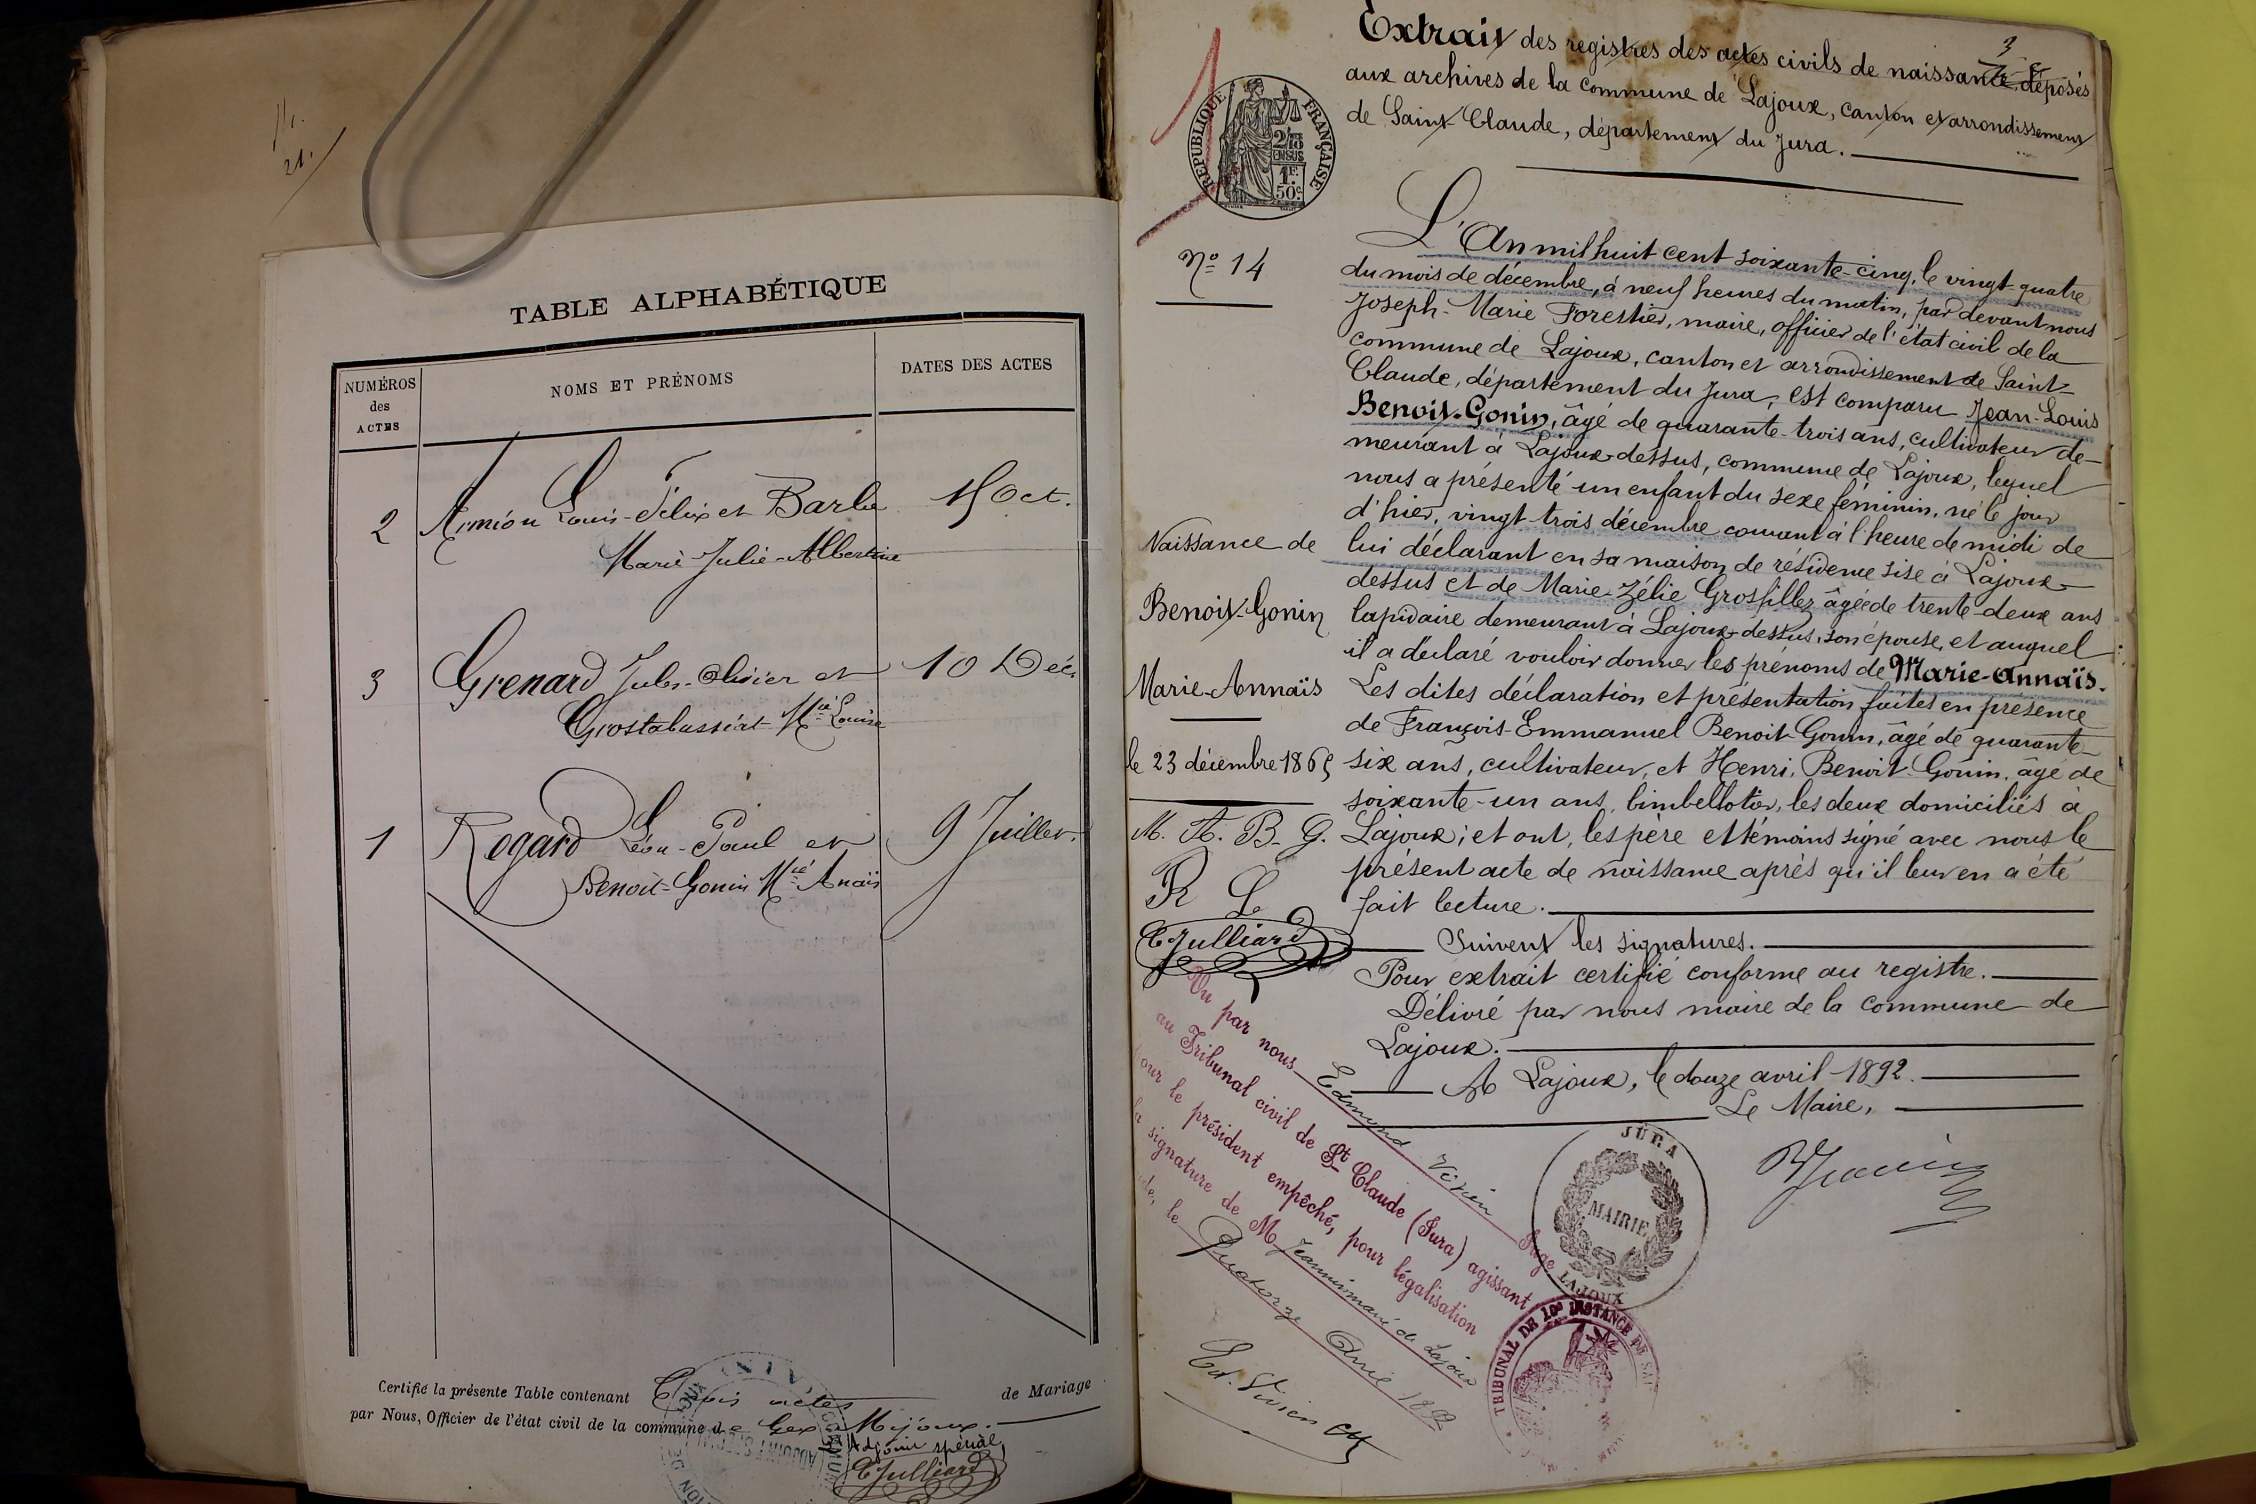 21.
TABLE ALPHABÉTIQUE
NUMÉROS
des
ACTES
NOMS ET PRÉNOMS
DATES DES ACTES
2 Armion Louis-Félix et Barbe 15 Oct.
Marie-Julie-Albertine
3 Grenard Jules-Olivier et 10 Déc.
Grostabussiat Mie Louise
1 Regard Léon-Paul et 9 Juillet.
Benoit-Gonin Mie Anaïs
Certifié la présente Table contenant Trois actes de Mariage
par Nous, Officier de l'état civil de la commune de Gex-Mijoux.
Adjoint spécial,
CJulliard
Extrait des registres des actes civils de naissance, déposés
aux archives de la commune de Lajoux, canton et arrondissement
de Saint-Claude, département du Jura.
RÉPUBLIQUE FRANÇAISE
2/10
EN SUS
1F.
50c.
No 14
L'An mil huit cent soixante-cinq, le vingt-quatre
du mois de décembre, à neuf heures du matin, par devant nous
Joseph-Marie Forestier, maire, officier de l'état civil de la
commune de Lajoux, canton et arrondissement de Saint-
Claude, département du Jura, est comparu Jean-Louis
Benoit-Gonin, âgé de quarante-trois ans, cultivateur de-
meurant à Lajoux-dessus, commune de Lajoux, lequel
nous a présenté un enfant du sexe féminin, né le jour
d'hier, vingt trois décembre courant à l'heure de midi de
lui déclarant en sa maison de résidence sise à Lajoux-
dessus et de Marie-Zélie Grosfillez âgée de trente-deux ans
lapidaire demeurant à Lajoux-dessus, son épouse, et auquel
il a déclaré vouloir donner les prénoms de Marie-Annaïs.
Les dites déclaration et présentation faites en présence
de François-Emmanuel Benoit-Gonin, âgé de quarante-
six ans, cultivateur, et Henri, Benoit-Gonin, âgé de
soixante-un ans, bimbellotier, les deux domiciliés à
Lajoux; et ont, les père et témoins signé avec nous le
présent acte de naissance après qu'il leur en a été
fait lecture.
Suivent les signatures.
Pour extrait certifié conforme au registre.
Délivré par nous maire de la commune de
Lajoux.
A Lajoux, le douze avril 1892.
Le Maire,
Naissance de
Benoit-Gonin
Marie-Annaïs
le 23 décembre 1865
M. A. B. G.
R L
CJulliard
Vu par nous Edmond Vivien Juge
au Tribunal civil de St Claude (Jura) agissant
pour le président empêché, pour légalisation
la signature de M Jeannin maire de Lajoux
le Quatorze Avril 1892
Ed. Vivien
JURA
MAIRIE
LAJOUX
TRIBUNAL DE 1re INSTANCE DE